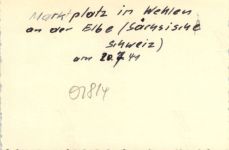 Marktplatz in Wehlen
an der Elbe (Sächsische
Schweiz)
am 20.7.41